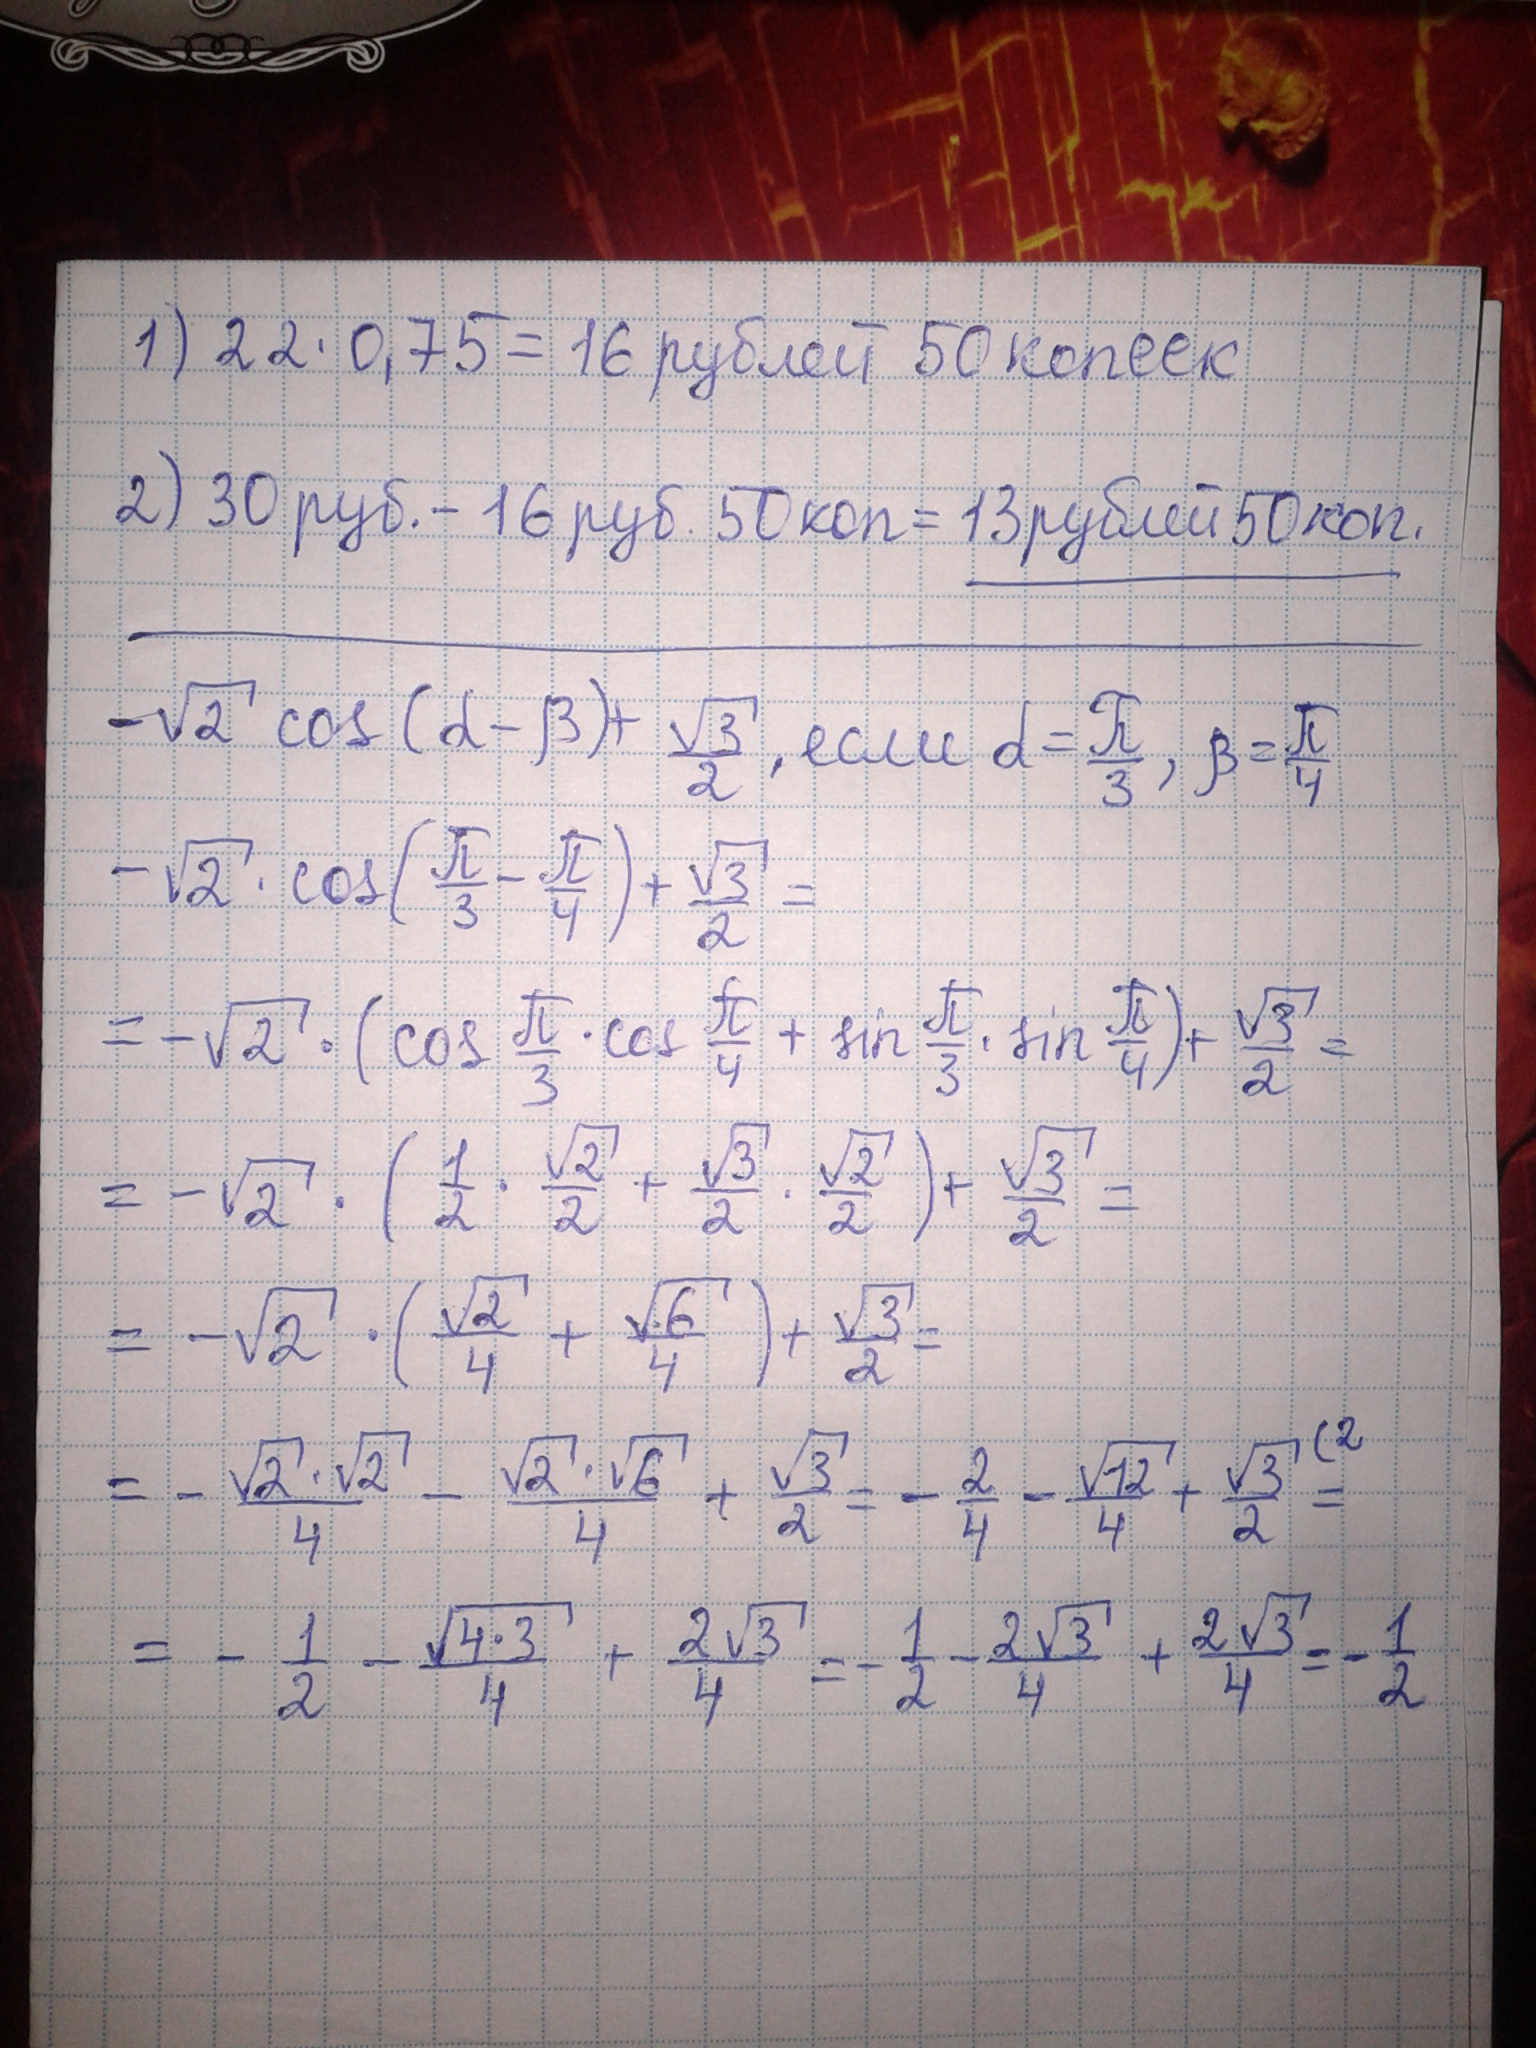 1) 22 · 0,75 = 16 рублей 50 копеек
2) 30 руб. - 16 руб. 50 коп = 13 рублей 50 коп.
-√2 cos (α - β) + √3/2, если α = π/3, β = π/4
-√2 · cos(π/3 - π/4) + √3/2 =
= -√2 · (cos π/3 · cos π/4 + sin π/3 · sin π/4) + √3/2 =
= -√2 · (1/2 · √2/2 + √3/2 · √2/2) + √3/2 =
= -√2 · (√2/4 + √6/4) + √3/2 =
= - √2·√2/4 - √2·√6/4 + √3/2 = - 2/4 - √12/4 + √3/2 (2 =
= - 1/2 - √4·3/4 + 2√3/4 = - 1/2 - 2√3/4 + 2√3/4 = - 1/2